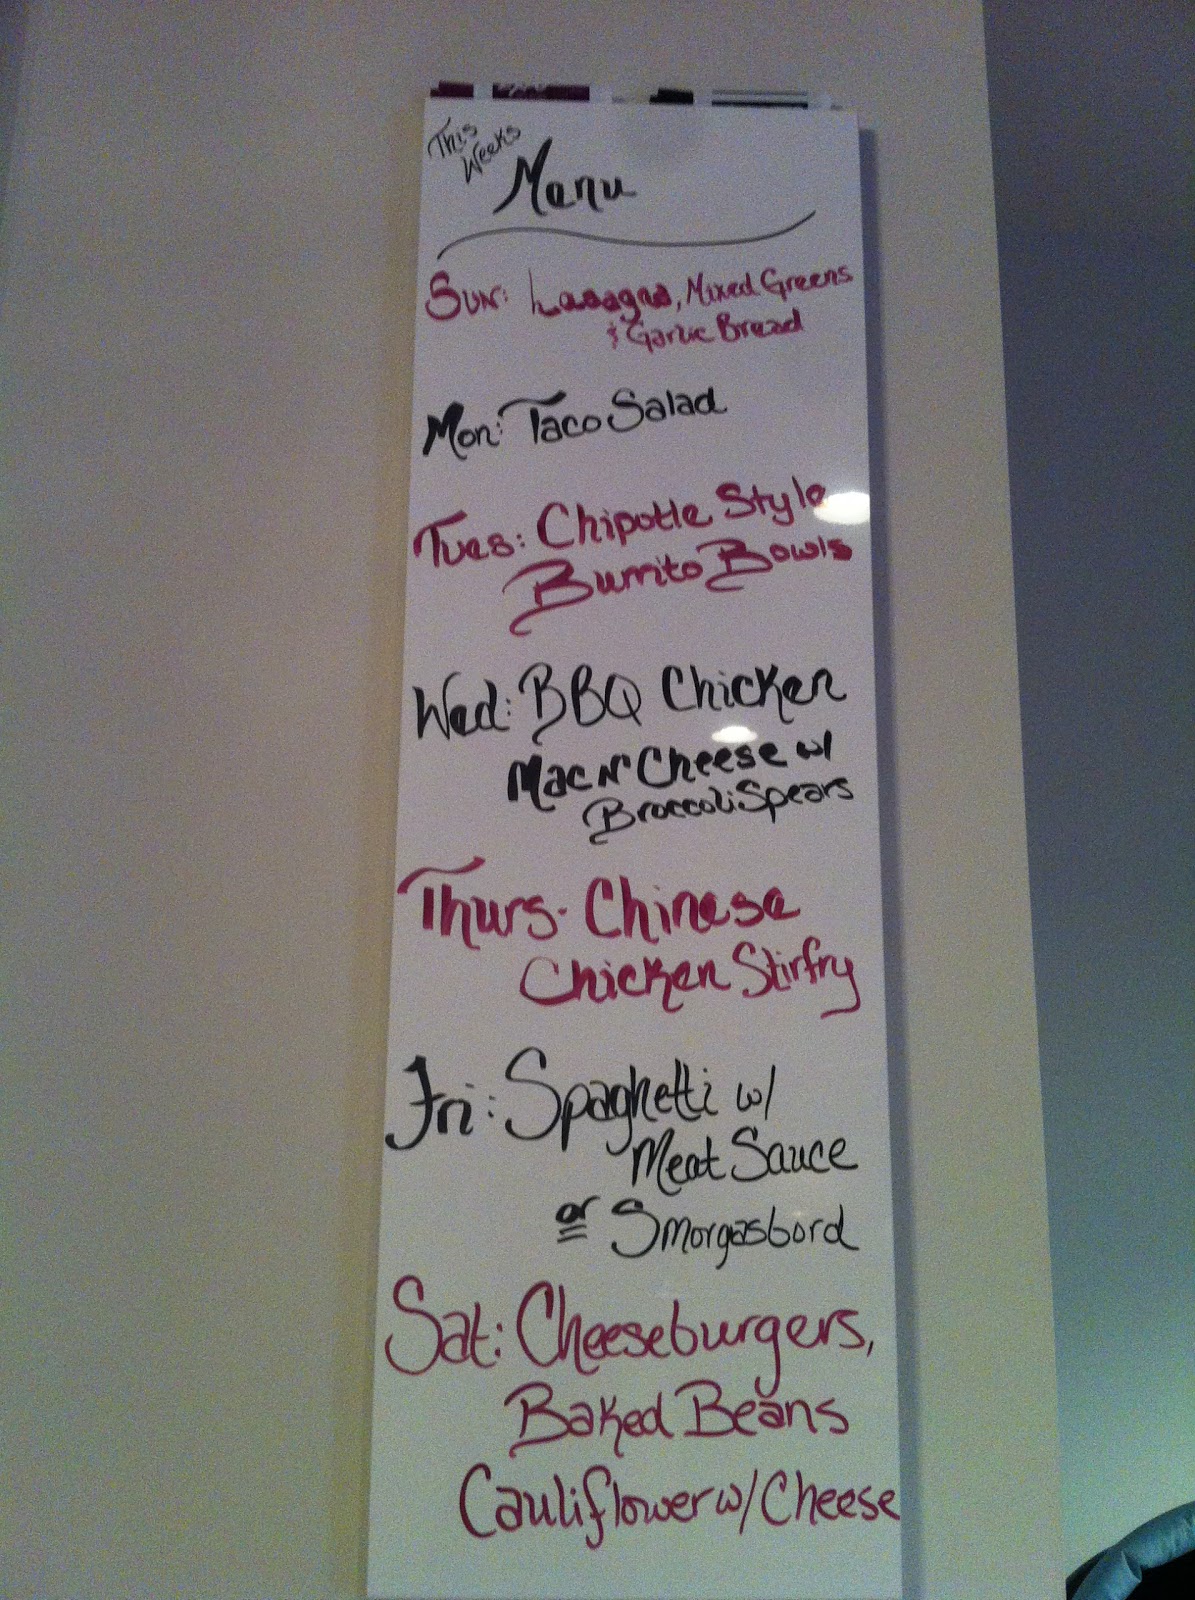 This
Weeks
Menu
Sun: Lasagna, Mixed Greens
& Garlic Bread
Mon: Taco Salad
Tues: Chipotle Style
Burrito Bowls
Wed: BBQ Chicken
Mac N' Cheese w/
Broccoli Spears
Thurs- Chinese
Chicken Stirfry
Fri: Spaghetti w/
Meat Sauce
or Smorgasbord
Sat: Cheeseburgers,
Baked Beans
Cauliflower w/ Cheese